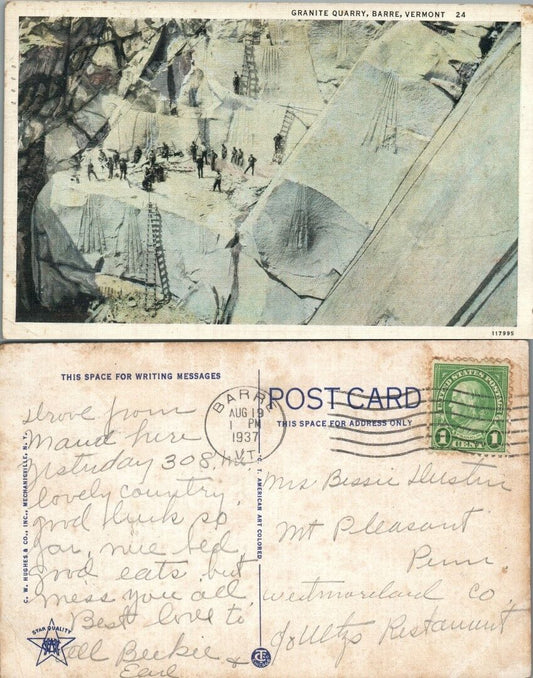 GRANITE QUARRY, BARRE, VERMONT 24
117995
THIS SPACE FOR WRITING MESSAGES
drove from
Maud here
yesturday 308, mi
lovely country,
good luck so
far, nice bed,
good eats, but
mess you all
Best love to
all Beckie &
Earl
C. W. HUGHES & CO., INC., MECHANICVILLE, N. Y.
STAR QUALITY
C. T. AMERICAN ART COLORED
BARRE
AUG 19
1 PM
1937
VT.
POST CARD
THIS SPACE FOR ADDRESS ONLY
UNITED STATES POSTAGE
1 CENT 1
Mrs Bessie
Mt Pleasant
Penn
Westmoreland Co
Restaurant